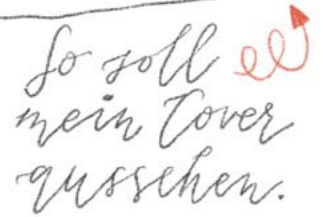 So soll
mein Cover
aussehen.